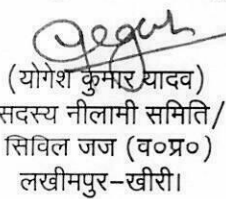 (योगेश कुमार यादव)
सदस्य नीलामी समिति/
सिविल जज (व०प्र०)
लखीमपुर-खीरी।